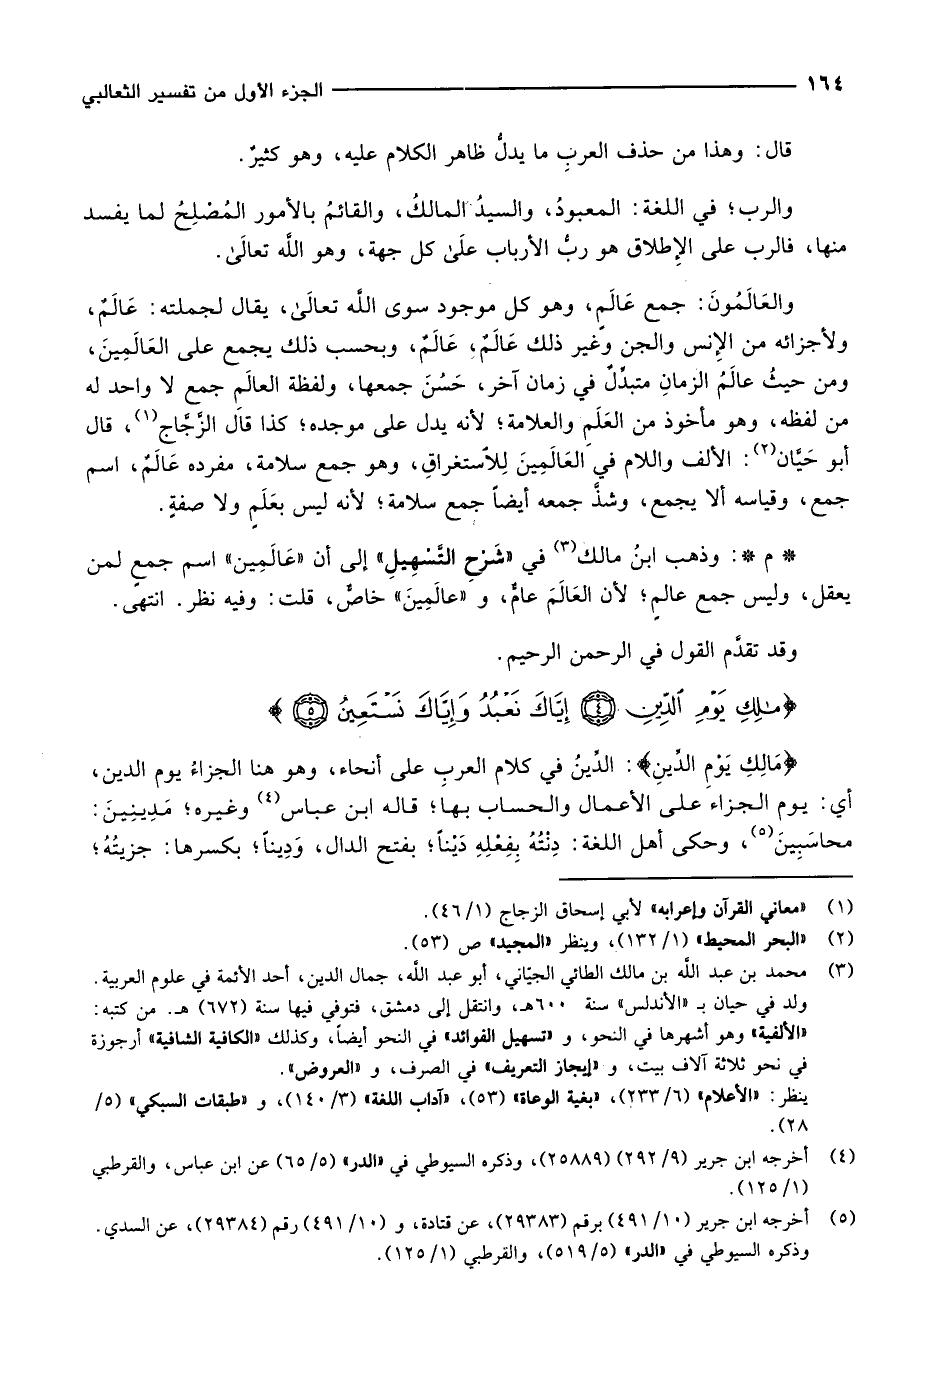 ١٦٤ الجزء الأول من تفسير الثعالبي
قال: وهذا من حذف العربِ ما يدلُّ ظاهر الكلام عليه، وهو كثيرٌ.
والرب؛ في اللغة: المعبودُ، والسيدُ المالكُ، والقائمُ بالأمور المُصْلِحُ لما يفسد
منها، فالرب على الإِطلاق هو ربُّ الأرباب علَىٰ كل جهة، وهو اللَّه تعالَىٰ.
والعَالَمُونَ: جمع عَالَمٍ، وهو كل موجود سوى اللَّه تعالَىٰ، يقال لجملته: عَالَمٌ،
ولأجزائه من الإِنس والجن وغير ذلك عَالَمٌ، عَالَمٌ، وبحسب ذلك يجمع على العَالَمِينَ،
ومن حيثُ عالَمُ الزمانِ متبدِّلٌ في زمان آخر، حَسُنَ جمعها، ولفظة العالَم جمع لا واحد له
من لفظه، وهو مأخوذ من العَلَمِ والعلامة؛ لأنه يدل على موجده؛ كذا قال الزَّجَّاج(١)، قال
أبو حَيَّان(٢): الألف واللام في العَالَمِينَ لِلاْستغراقِ، وهو جمع سلامة، مفرده عَالَمٌ، اسم
جمع، وقياسه ألا يجمع، وشذَّ جمعه أيضاً جمع سلامة؛ لأنه ليس بعَلَمٍ ولا صفةٍ.
* م *: وذهب ابنُ مالك(٣) في «شَرْحِ التَّسْهِيلِ» إلى أن «عَالَمِين» اسم جمعٍ لمن
يعقل، وليس جمع عالمٍ؛ لأن العَالَمَ عامٌّ، و «عالَمِينَ» خاصٌّ، قلت: وفيه نظر. انتهى.
وقد تقدَّم القول في الرحمن الرحيم.
﴿مَـٰلِكِ يَوْمِ ٱلدِّينِ ﴿٤﴾ إِيَّاكَ نَعْبُدُ وَإِيَّاكَ نَسْتَعِينُ ﴿٥﴾ ﴾
﴿مَالِكِ يَوْمِ الدِّينِ﴾: الدِّينُ في كلام العربِ على أنحاء، وهو هنا الجزاءُ يوم الدين،
أي: يوم الجزاء على الأعمال والحساب بها؛ قاله ابن عباس(٤) وغيره؛ مَدِينِينَ:
محاسَبِينَ(٥)، وحكى أهل اللغة: دِنْتُهُ بِفِعْلِهِ دَيْناً؛ بفتح الدال، وَدِيناً؛ بكسرها: جزيتُهُ؛
(١) «معاني القرآن وإعرابه» لأبي إسحاق الزجاج (٤٦/١).
(٢) «البحر المحيط» (١/ ١٣٢)، وينظر «المجيد» ص (٥٣).
(٣) محمد بن عبد اللَّه بن مالك الطائي الجيّاني، أبو عبد اللَّه، جمال الدين، أحد الأئمة في علوم العربية.
ولد في حيان بـ «الأندلس» سنة ٦٠٠هـ، وانتقل إلى دمشق، فتوفي فيها سنة (٦٧٢) هـ. من كتبه:
«الألفية» وهو أشهرها في النحو، و «تسهيل الفوائد» في النحو أيضاً، وكذلك «الكافية الشافية» أرجوزة
في نحو ثلاثة آلاف بيت، و «إيجاز التعريف» في الصرف، و «العروض».
ينظر: «الأعلام» (٢٣٣/٦)، «بغية الوعاة» (٥٣)، «آداب اللغة» (٣/ ١٤٠)، و «طبقات السبكي» (٥/
٢٨).
(٤) أخرجه ابن جرير (٩/ ٢٩٢) (٢٥٨٨٩)، وذكره السيوطي في «الدر» (٥/ ٦٥) عن ابن عباس، والقرطبي
(١/ ١٢٥).
(٥) أخرجه ابن جرير (١٠/ ٤٩١) برقم (٢٩٣٨٣)، عن قتادة، و (١٠/ ٤٩١) رقم (٢٩٣٨٤)، عن السدي.
وذكره السيوطي في «الدر» (٥/ ٥١٩)، والقرطبي (١/ ١٢٥).